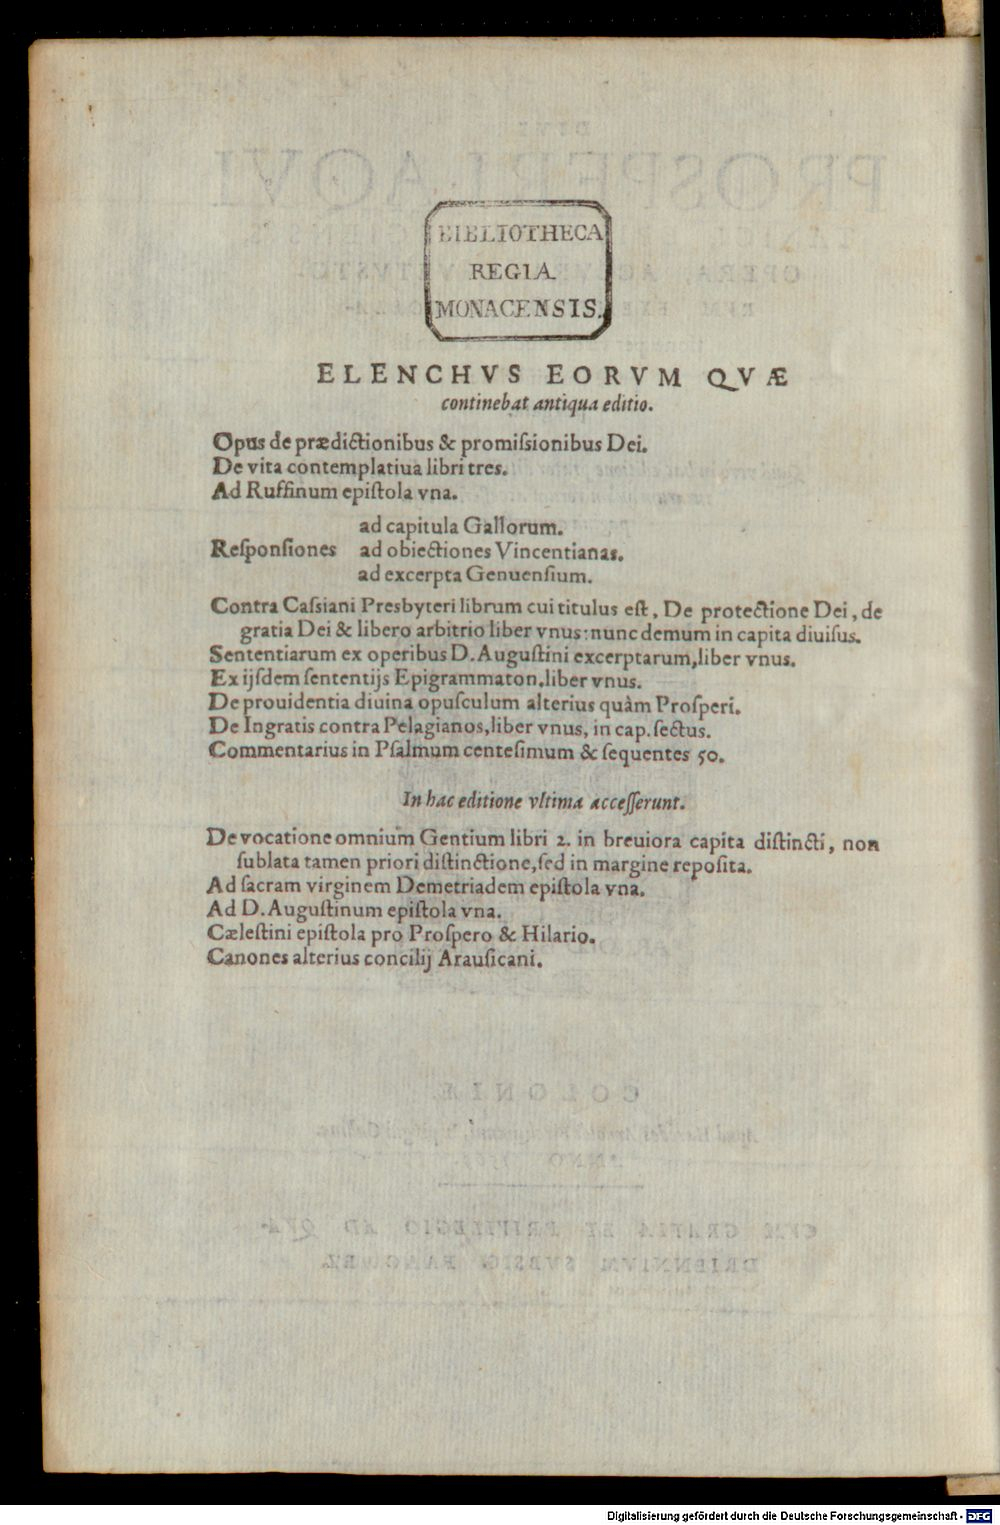 BIBLIOTHECA
REGIA
MONACENSIS.
ELENCHVS EORVM QVÆ
continebat antiqua editio.
Opus de prædictionibus & promiſsionibus Dei.
De vita contemplatiua libri tres.
Ad Ruffinum epiſtola vna.
ad capitula Gallorum.
Reſponſiones ad obiectiones Vincentianas.
ad excerpta Genuenſium.
Contra Caſsiani Presbyteri librum cui titulus eſt, De protectione Dei, de
gratia Dei & libero arbitrio liber vnus: nunc demum in capita diuiſus.
Sententiarum ex operibus D. Auguſtini excerptarum, liber vnus.
Ex ijſdem ſententijs Epigrammaton, liber vnus.
De prouidentia diuina opuſculum alterius quàm Proſperi.
De Ingratis contra Pelagianos, liber vnus, in cap. ſectus.
Commentarius in Pſalmum centeſimum & ſequentes 50.
In hac editione vltima acceſſerunt.
De vocatione omnium Gentium libri 2. in breuiora capita diſtincti, non
ſublata tamen priori diſtinctione, ſed in margine repoſita.
Ad ſacram virginem Demetriadem epiſtola vna.
Ad D. Auguſtinum epiſtola vna.
Cæleſtini epiſtola pro Proſpero & Hilario.
Canones alterius concilij Arauſicani.
Digitalisierung gefördert durch die Deutsche Forschungsgemeinschaft - DFG